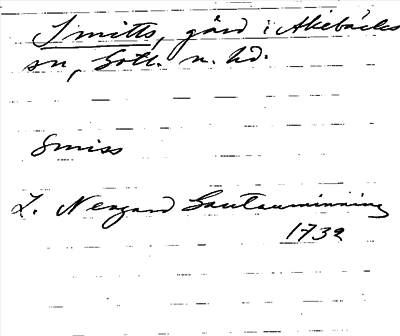 Smitts, gård i Akebäcks
sn, Gotl. n. hd.
Smiss
L. Nergard Gautauminning
1732